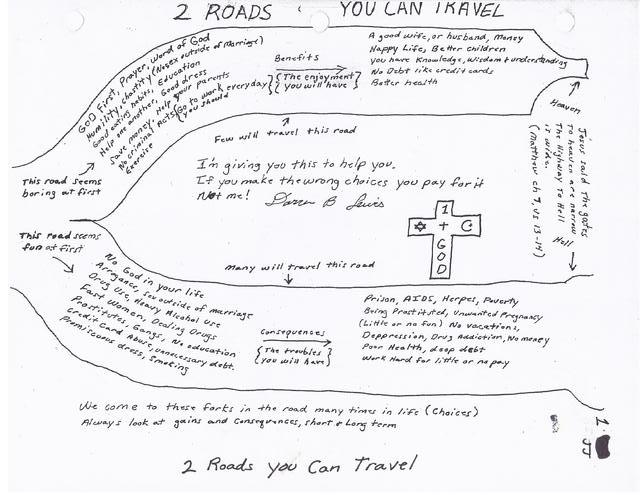 2 ROADS YOU CAN TRAVEL
GOD First, Prayer, Word of God
Humility, chastity (No sex outside of Marriage)
Good eating habits, Education
Help one another, Good dress
Save money, Help your parents
No criminal acts, Go to work everyday
Exercise you should
Benefits
{The enjoyment}
{you will have}
A good wife, or husband, Money
Happy Life, Better children
You have Knowledge, Wisdom & understanding
No Debt like credit cards
Better health
This road seems
boring at first
Few will travel this road
Heaven
Jesus said The gates
to heaven are narrow
The Highway To Hell
is wide.
(Matthew ch 7, vs 13-14)
Hell
I'm giving you this to help you.
If you make the wrong choices you pay for it
Not me! Darren B Lewis
1
✡ + ☪
G
O
D
This road seems
fun at first
Many will travel this road
No God in your life
Arrogance, sex outside of marriage
Drug Use, Heavy Alcohol Use
Fast Women, Dealing Drugs
Prostitutes, Gangs, No education
Credit Card Abuse, unnecessary debt.
Promiscous dress, smoking
Consequences
{The troubles}
{you will have}
Prison, AIDS, Herpes, Poverty
Being Prostituted, Unwanted Pregnancy
(Little or no fun) No vacations,
Deppression, Drug Addiction, No money
Poor Health, deep debt
Work Hard for little or no pay
We come to these forks in the road many times in life (Choices)
Always look at gains and Consequences, short & Long term
2 Roads you Can Travel